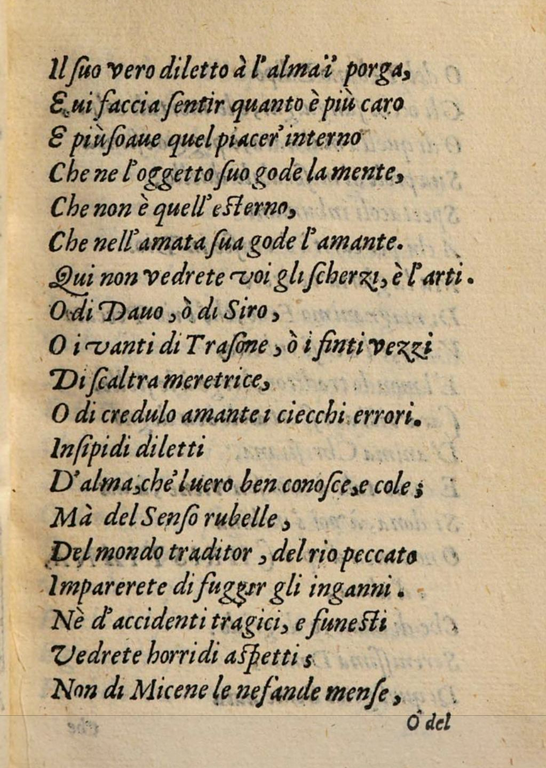 Il ſuo vero diletto à l'alma i' porga,
E ui faccia ſentir quanto è più caro
E più ſoaue quel piacer' interno
Che ne l'oggetto ſuo gode la mente,
Che non è quell' eſterno,
Che nell' amata ſua gode l'amante.
Qui non vedrete voi gli ſcherzi, è l'arti.
O di Dauo, ò di Siro,
O i vanti di Traſone, ò i finti vezzi
Di ſcaltra meretrice,
O di credulo amante i ciecchi errori.
Inſipidi diletti
D'alma, che'l uero ben conoſce, e cole;
Mà del Senſo rubelle,
Del mondo traditor, del rio peccato
Imparerete di fuggir gli inganni.
Nè d'accidenti tragici, e funeſti
Vedrete horridi aſpetti;
Non di Micene le nefande menſe,
O del